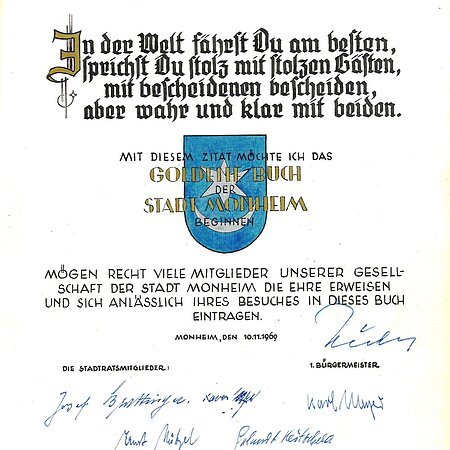 In der Welt fährst Du am besten,
sprichst Du stolz mit stolzen Gästen,
mit bescheidenen bescheiden,
aber wahr und klar mit beiden.
MIT DIESEM ZITAT MÖCHTE ICH DAS
GOLDENE BUCH
DER
STADT MONHEIM
BEGINNEN
MÖGEN RECHT VIELE MITGLIEDER UNSERER GESELL-
SCHAFT DER STADT MONHEIM DIE EHRE ERWEISEN
UND SICH ANLÄSSLICH IHRES BESUCHES IN DIESES BUCH
EINTRAGEN.
MONHEIM, DEN 10.11.1969
DIE STADTRATSMITGLIEDER: 1. BÜRGERMEISTER
Josef Karl Mayer